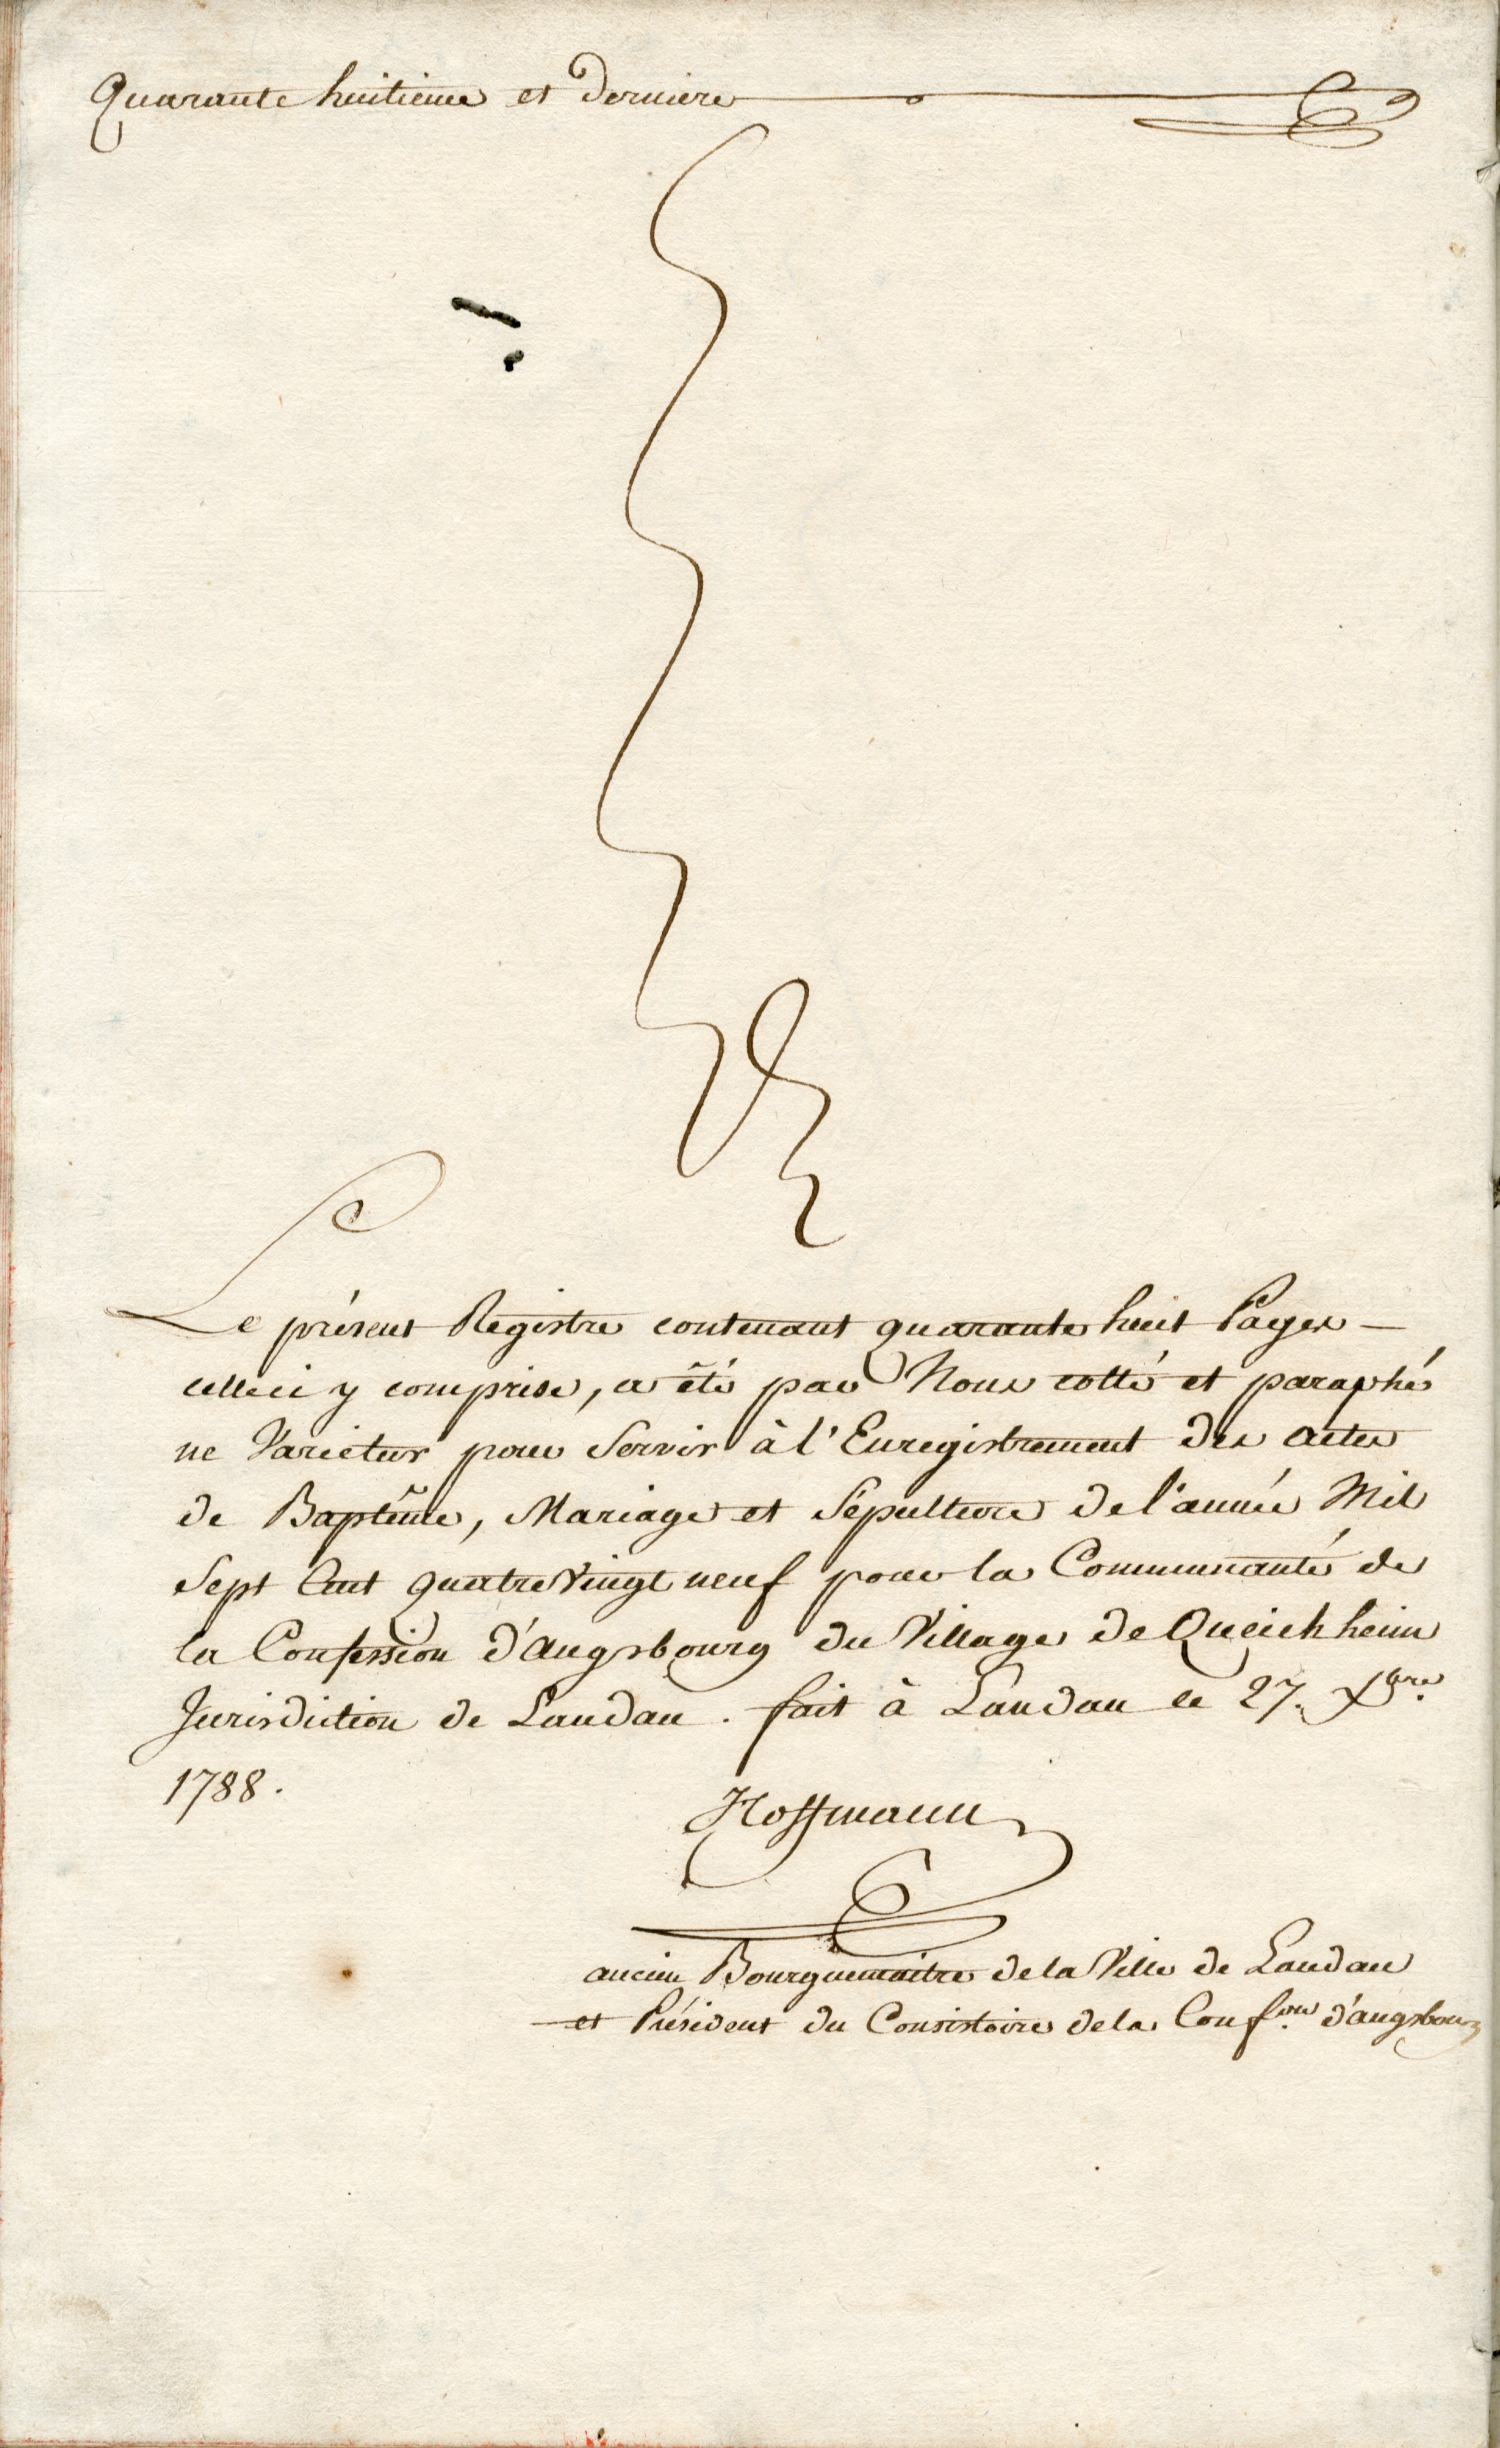 Quarante huitieme et derniere
Le présent Registre contenant quarante huit Pages
celleci y comprise, a êté par Nous cotté et paraphé
ne Varietur pour Servir à l'Enregistrement des actes
de Baptême, Mariage et Sépulture de l'année Mil
Sept Cent quatre Vingt neuf pour la Communauté de
la Confession d'augsbourg du Village de Queichheim
Jurisdiction de Landau. fait à Landau le 27. Xbre.
1788.
Hoffmann
ancien Bourguemaitre de la Ville de Landau
et Président du Consistoire de la Conf.on d'augsbourg